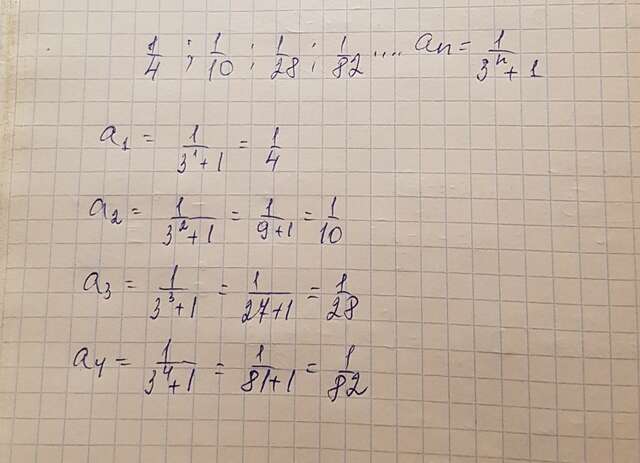 1/4 ; 1/10 ; 1/28 ; 1/82 .... aₙ = 1/(3ⁿ + 1)
a₁ = 1/(3¹+1) = 1/4
a₂ = 1/(3²+1) = 1/(9+1) = 1/10
a₃ = 1/(3³+1) = 1/(27+1) = 1/28
a₄ = 1/(3⁴+1) = 1/(81+1) = 1/82